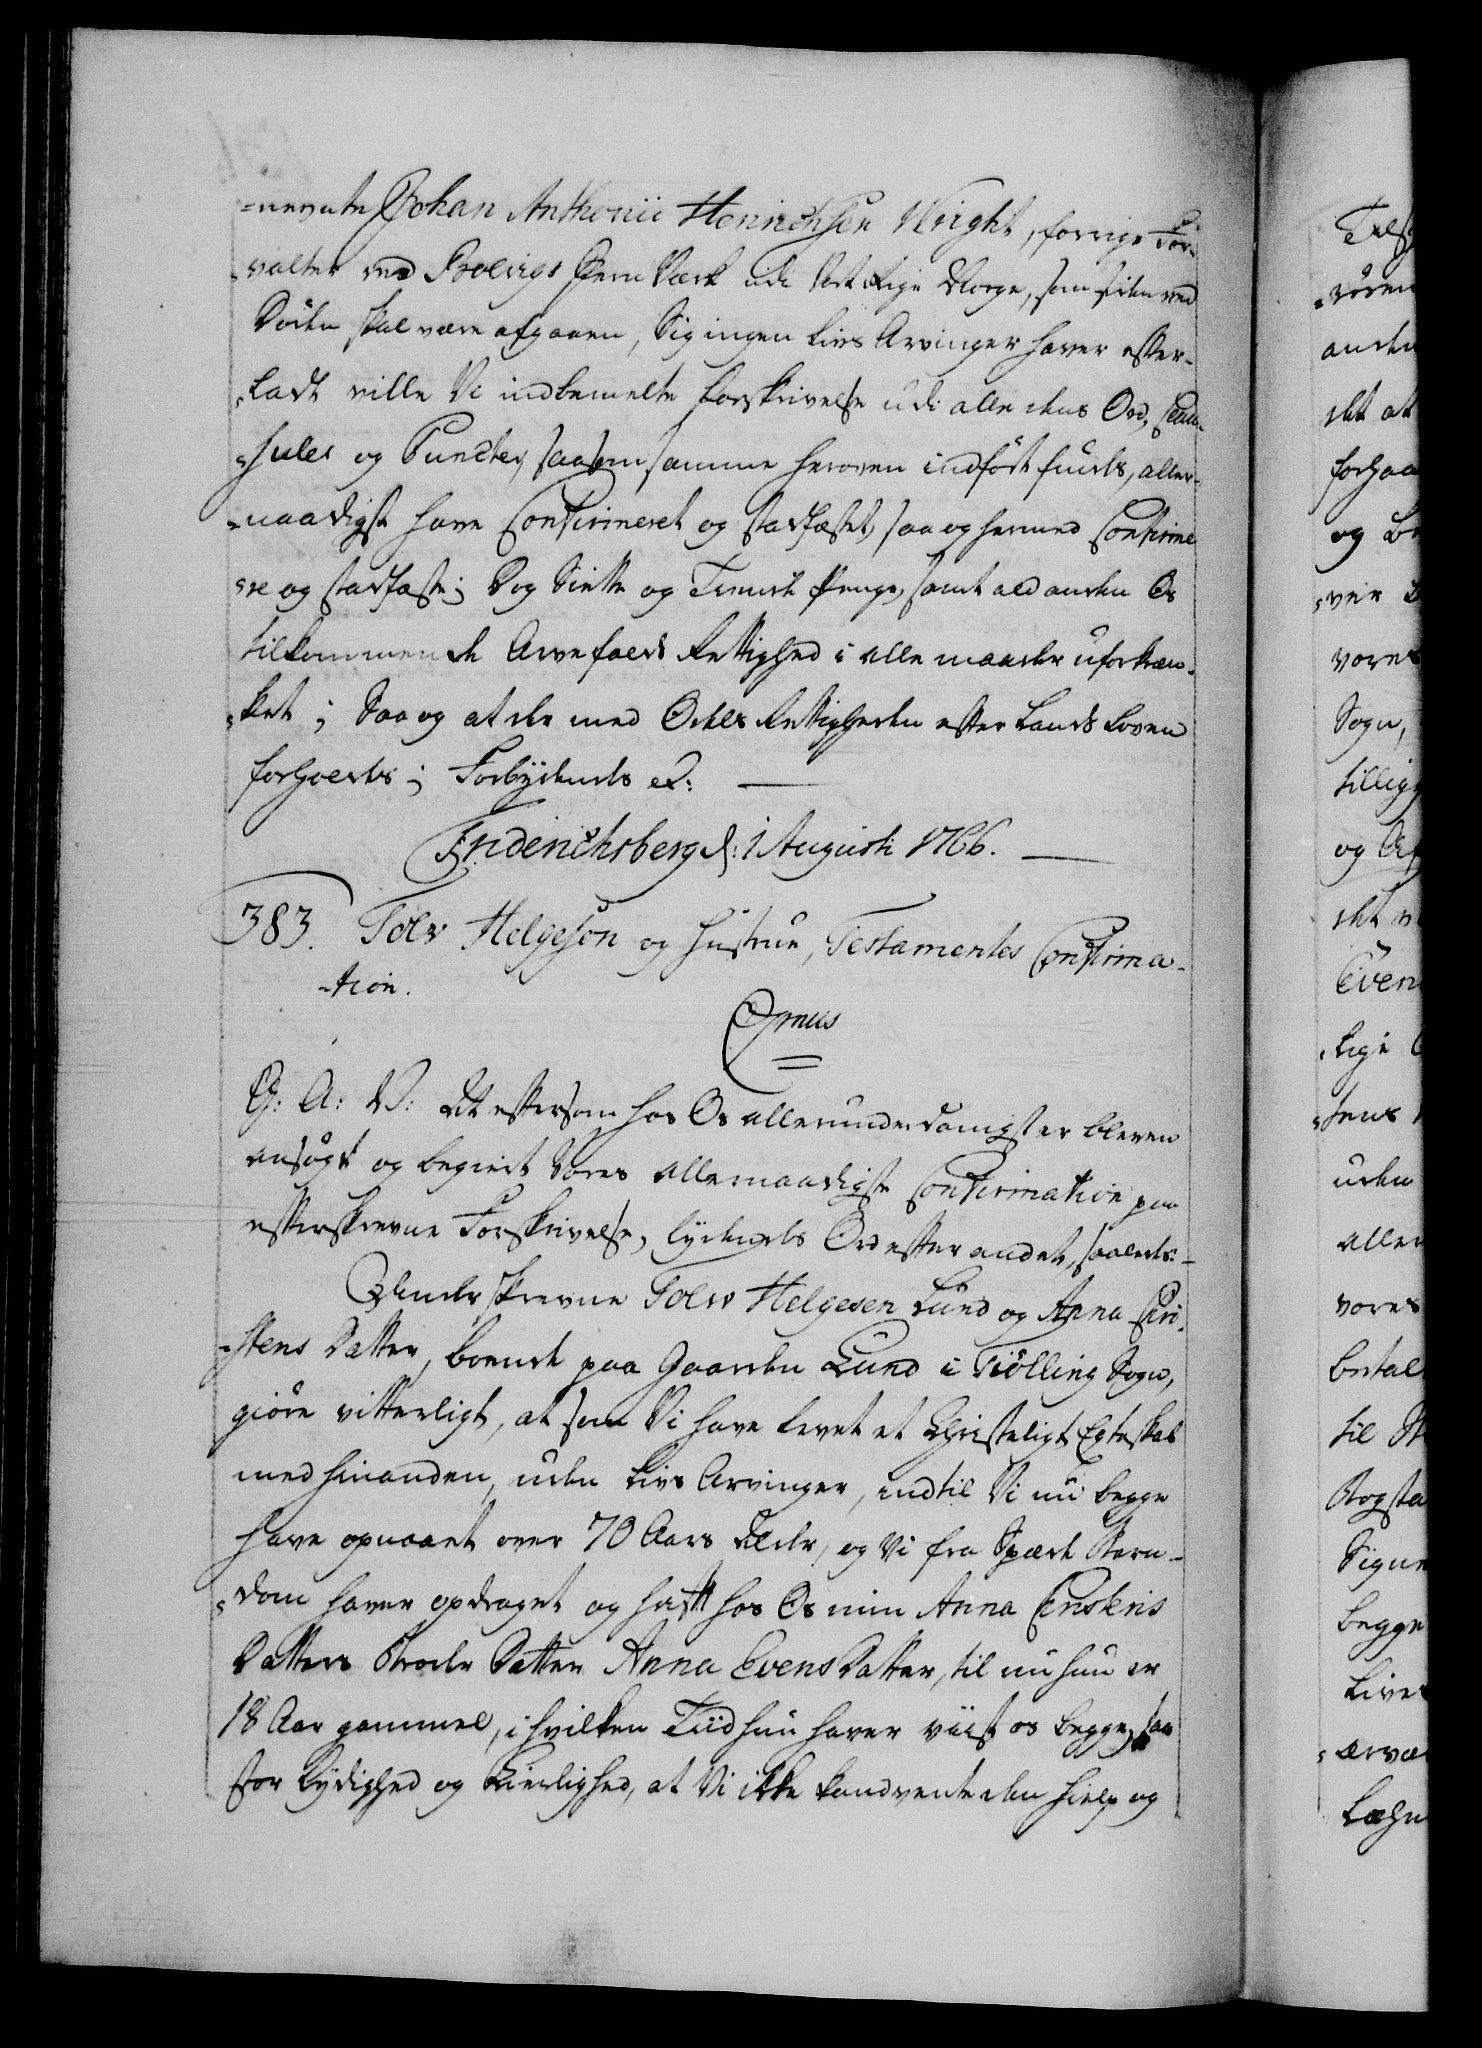 -nevnte Johan Anthonii Henrichsen Wright, forrige For-
-valter ved Bolvigs Jern Værk udi Vort Rige Norge, som siden ved
Döden skal være afgaaen, Sig ingen Livs Arvinger haver efter-
-ladt ville Vi indbemelte Forskrivelse udi alle dens Ord, Clau-
-suler og Puncter, saasom samme heroven indfört findes, aller-
-naadigst have Confirmeret og stadfæstet, saa og hermed Confirme
-re og stadfæste; Dog Siette og Tiende Penge, samt ald anden Os
tilkommende Arvefalds Rettighed i alle maader uforkræn-
-ket; Saa og at der med Odels Rettigheden efter Lands Loven
forholdes; Forbydendes etc:
Friderichsberg d: 1 Augusti 1766.
383. Tolv Helgeson og Hustrue, Testamentes Confirma-
-tion.
C: A: V: At eftersom hos Os allerunderdanigst er bleven
ansögt og begiert Vores allernaadigste Confirmation paa
efterskrevne Forskrivelse, lydendes Ord efter andet, saaledes:-
Underskrevne Tolv Helgesen Lund og Anna Chri-
-stens Datter, boende paa Gaarden Lund i Tiölling Sogn,
giöre vitterligt, at som Vi have levet et Christeligt Egteskab
med hinanden, uden Livs Arvinger, indtil Vi nu begge
have opnaaet over 70 Aars Alder, og Vi fra Spæde Barn-
-dom haver opdraget og havt hos Os min Anna Christens
Datters Broder Datter Anna Evens Datter, til nu hun er
18 Aar gammel, i hvilken Tiid hun haver viist os begge, saa
stor Lydighed og Kierlighed, at Vi ikke kand vente den Hielp og